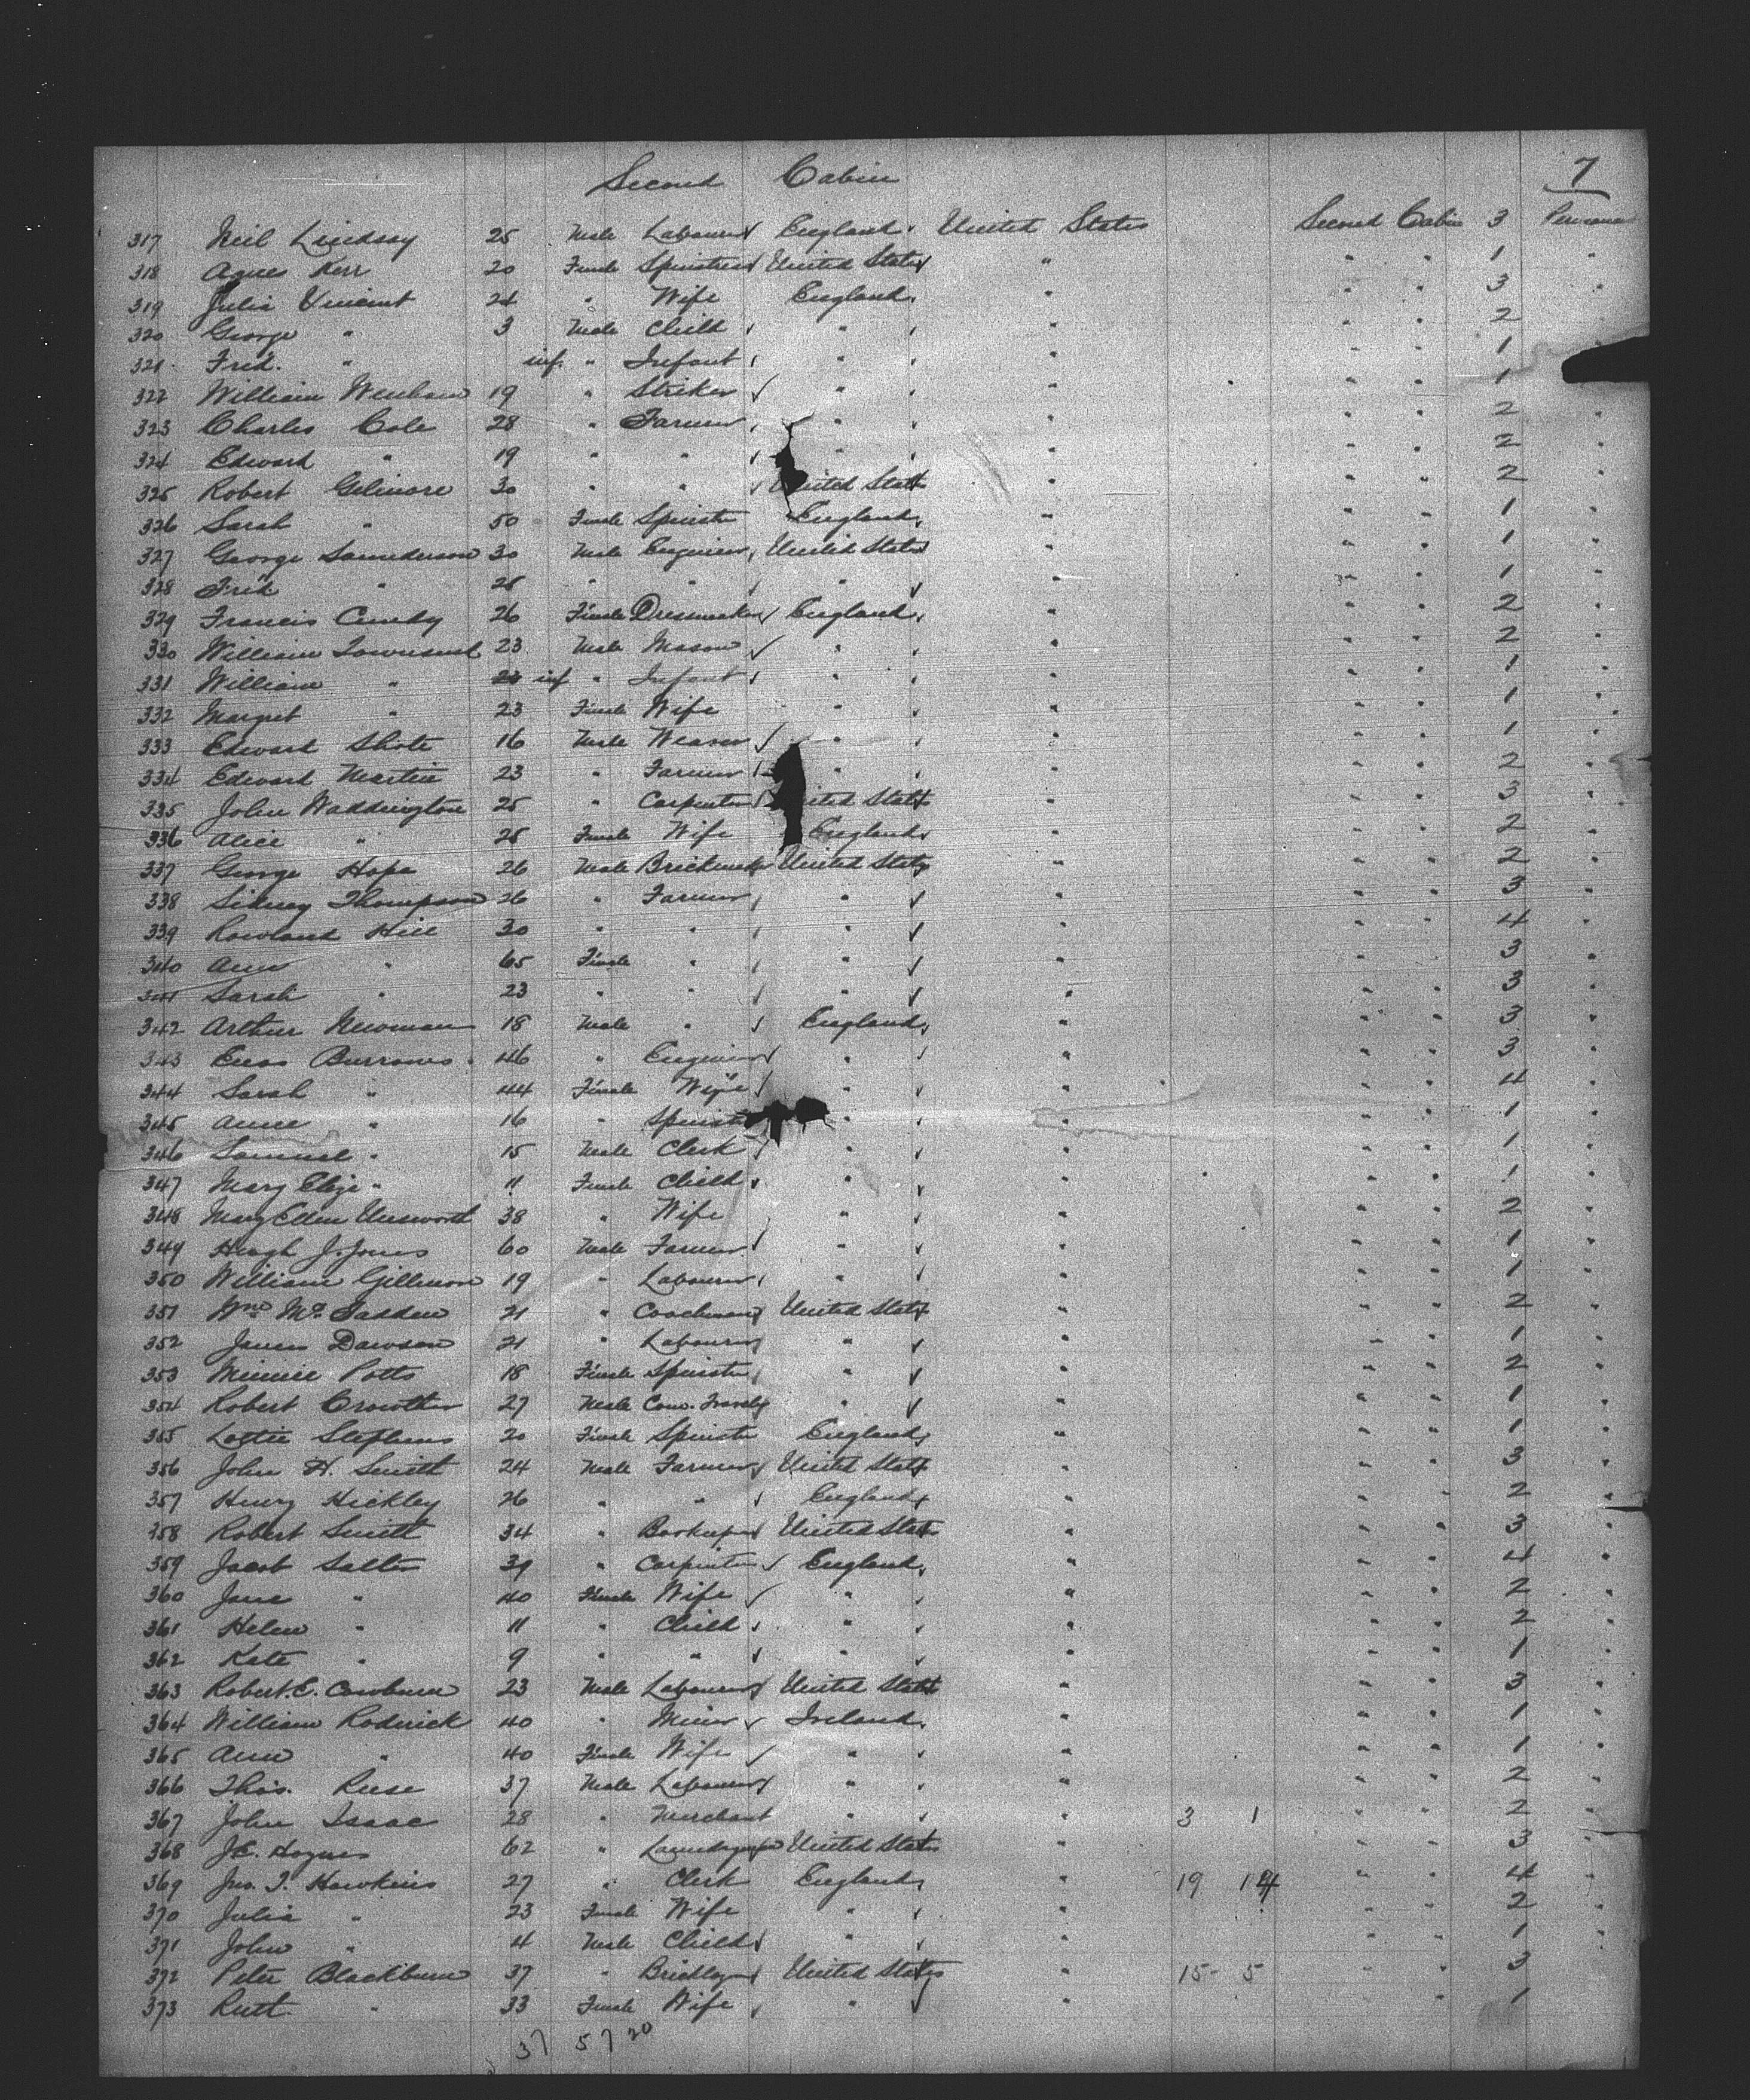 7
Second Cabin
317 Neil Lindsay 25 Male Labourer England United States Second Cabin 3 Permanent
318 Agnes Kerr 20 Female Spinster United States " " " 1 "
319 Julia Vincent 24 " Wife England " " " 3 "
320 George " 3 Male Child " " " " 2 "
321 Fred. " inf. " Infant " " " " 1 "
322 William Wenham 19 " Striker " " " " 1
323 Charles Cole 28 " Farmer " " " " 2 "
324 Edward " 19 " " " " " " 2 "
325 Robert Gilmore 30 " " United States " " " 2 "
326 Sarah " 50 Female Spinster England " " " 1 "
327 George Saunderson 30 Male Engineer United States " " " 1 "
328 Fred " 28 " " " " " " 1 "
329 Francis Cundy 26 Female Dressmaker England " " " 2 "
330 William Townsend 23 Male Mason " " " " 2 "
331 William " inf " Infant " " " " 1 "
332 Margret " 23 Female Wife " " " " 1 "
333 Edward Shote 16 Male Weaver " " " " 1 "
334 Edward Martin 23 " Farmer " " " " 2 "
335 John Waddington 25 " Carpenter United States " " " 3 "
336 Alice " 25 Female Wife England " " " 2 "
337 George Hope 26 Male Brickmaker United States " " " 2 "
338 Sidney Thompson 26 " Farmer " " " " 3 "
339 Rowland Hill 30 " " " " " " 4 "
340 Ann " 65 Female " " " " " 3 "
341 Sarah " 23 " " " " " " 3 "
342 Arthur Newman 18 Male " England " " " 3 "
343 Enos Burrows 46 " Engineer " " " " 3 "
344 Sarah " 44 Female Wife " " " " 4 "
345 Annie " 16 " Spinster " " " " 1 "
346 Samuel " 15 Male Clerk " " " " 1 "
347 Mary Eliza " 11 Female Child " " " " 1 "
348 Mary Ellen Unsworth 38 " Wife " " " " 2 "
349 Hugh J. Jones 60 Male Farmer " " " " 1 "
350 William Gillmore 19 " Labourer " " " " 1 "
351 Wm. Mc. Fadden 21 " Coachman United States " " " 2 "
352 James Dawson 21 " Labourer " " " " 1 "
353 Minnie Potts 18 Female Spinster " " " " 2 "
354 Robert Crowther 27 Male Com. Traveler " " " " 1 "
355 Lottie Stephens 20 Female Spinster England " " " 1 "
356 John H. Smith 24 Male Farmer United States " " " 3 "
357 Henry Hickley 26 " " England " " " 2 "
358 Robert Smith 34 " Bookeeper United States " " " 3 "
359 Jacob Salter 39 " Carpenter England " " " 4 "
360 Jane " 40 Female Wife " " " " 2 "
361 Helen " 11 " Child " " " " 2 "
362 Kate " 9 " " " " " " 1 "
363 Robert. E. Cowburn 23 Male Labourer United States " " " 3 "
364 William Roderick 40 " Miner Ireland " " " 1 "
365 Ann " 40 Female Wife " " " " 1 "
366 Thos. Reese 37 Male Labourer " " " " 2 "
367 John Isaac 28 " Merchant " " 3 1 " " 2 "
368 J.E. 62 " United States " " " 3 "
369 Jno. T. Hawkins 27 " Clerk England " 19 14 " " 4 "
370 Julia " 23 Female Wife " " " " 2 "
371 John " 4 Male Child " " " " 1 "
372 Peter Blackburn 37 " Bricklayer United States " 15- 5 " " 3 "
373 Ruth " 33 Female Wife " " " " 1
37 57 20